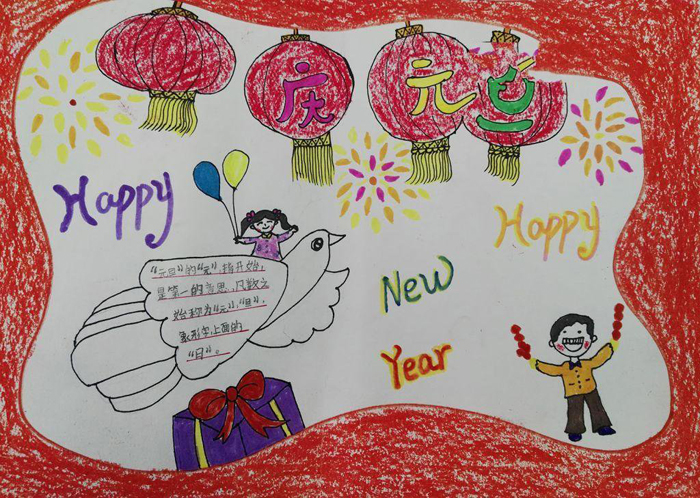 庆元旦
Happy
Happy
New
Year
“元旦”的“元”,指开始,
是第一的意思,凡数之
始称为“元”,“旦”,
象形字上面的
“日”。